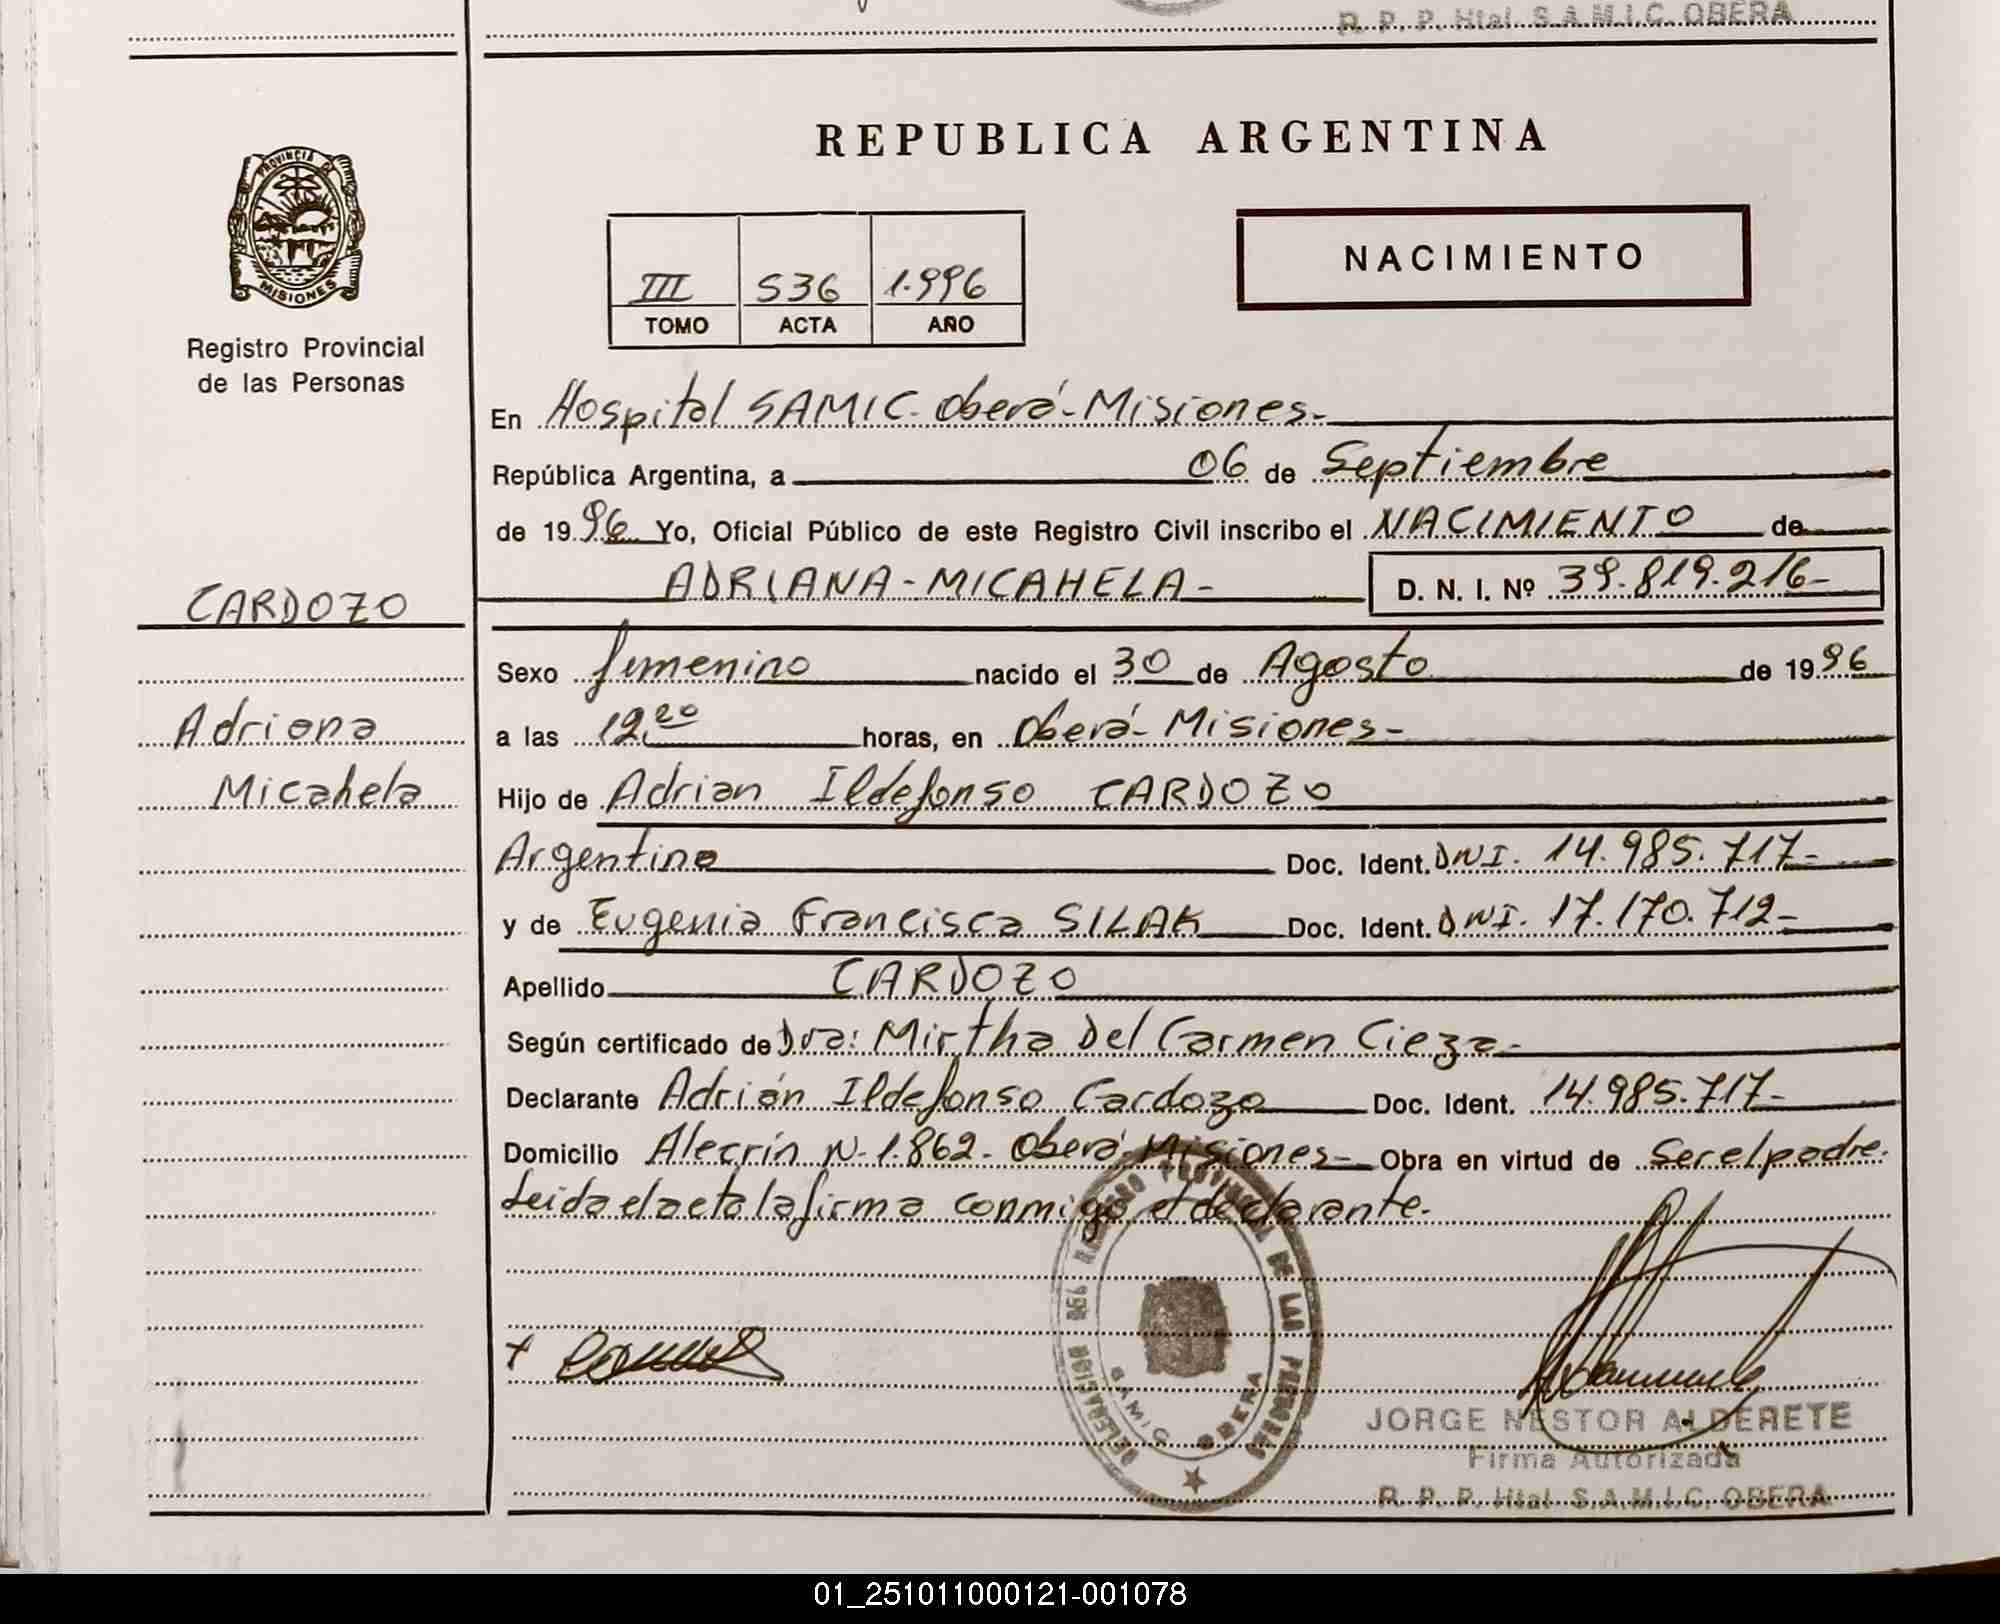 R. P. P. Htal. S.A.M.I.C. OBERA
PROVINCIA DE
MISIONES
Registro Provincial
de las Personas
REPUBLICA ARGENTINA
NACIMIENTO
III 536 1.996
TOMO ACTA AÑO
En Hospital SAMIC. Oberá-Misiones-
República Argentina, a 06 de Septiembre
de 1996 Yo, Oficial Público de este Registro Civil inscribo el NACIMIENTO de
CARDOZO
ADRIANA-MICAHELA- D. N. I. Nº 39.819.216-
Sexo femenino nacido el 30 de Agosto de 1996
Adriana
a las 12.20 horas, en Oberá-Misiones-
Micahela
Hijo de Adrian Ildefonso CARDOZO
Argentino Doc. Ident. DNI. 14.985.717-
y de Eugenia Francisca SILAK Doc. Ident. DNI. 17.170.712-
Apellido CARDOZO
Según certificado de Dra: Mirtha Del Carmen Cieza-
Declarante Adrián Ildefonso Cardozo Doc. Ident. 14.985.717-
Domicilio Alecrín N-1.862- Oberá-Misiones- Obra en virtud de ser el padre.
Leida el acta la firma conmigo el declarante.
DELEGACION DEL REGISTRO PROVINCIAL DE LAS PERSONAS
SAMIC OBERA
JORGE NESTOR ALDERETE
Firma Autorizada
R. P. P. Htal. S.A.M.I.C. OBERA
01_251011000121-001078